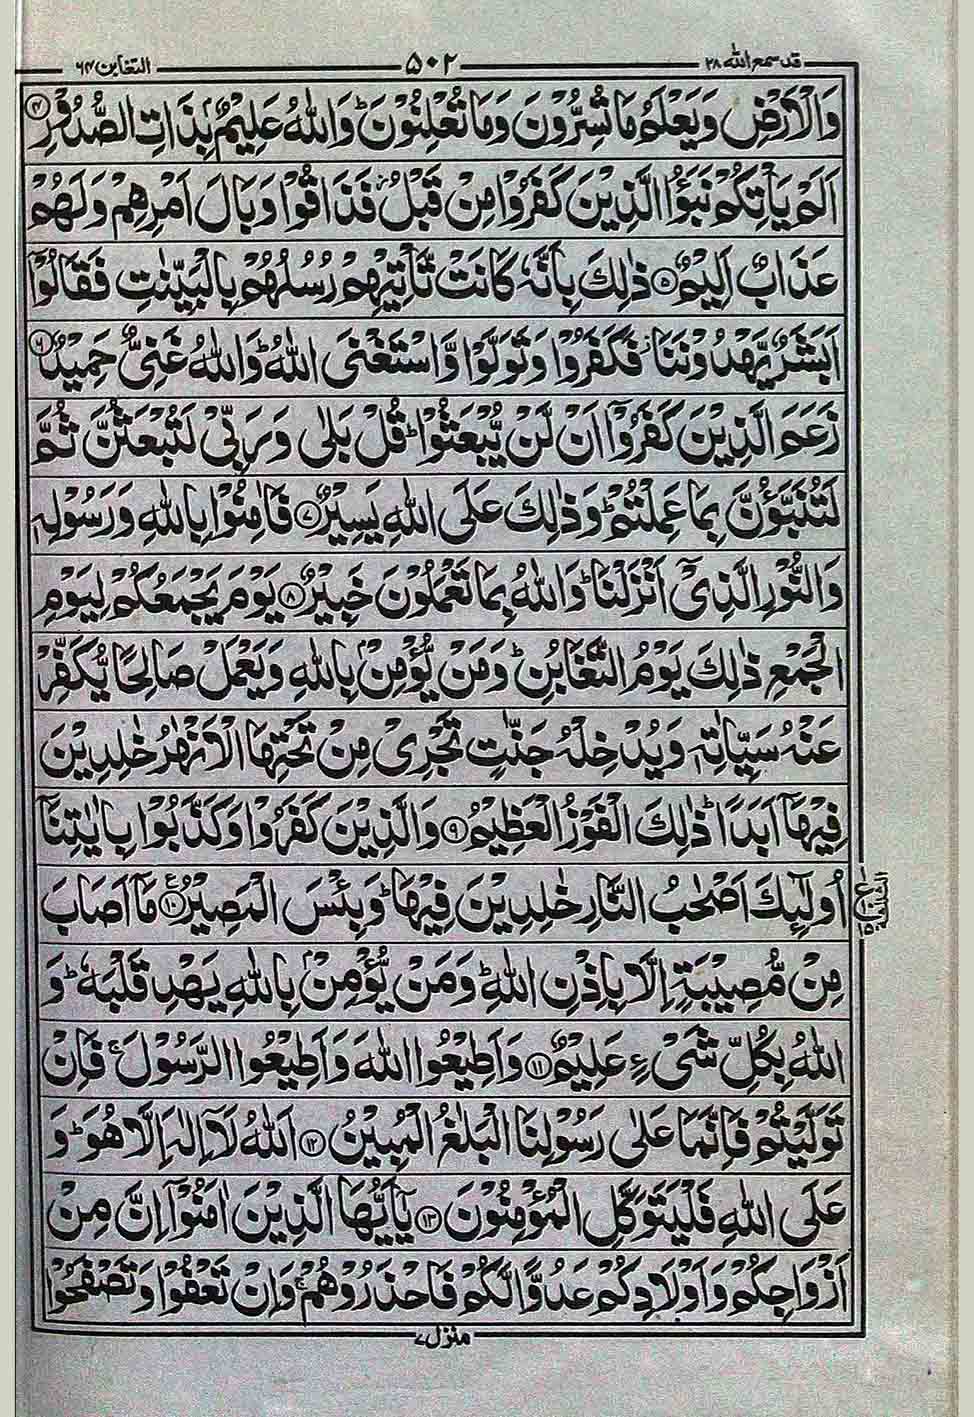 قد سمع الله ۲۸ ۵۰۲ التغابن ۶۴
وَالْاَرْضِ وَيَعْلَمُ مَا تُسِرُّوْنَ وَمَا تُعْلِنُوْنَ ؕ وَاللّٰهُ عَلِيْمٌۢ بِذَاتِ الصُّدُوْرِ ﴿۴﴾
اَلَمْ يَاْتِكُمْ نَبَؤُا الَّذِيْنَ كَفَرُوْا مِنْ قَبْلُ ؗ فَذَاقُوْا وَبَالَ اَمْرِهِمْ وَلَهُمْ
عَذَابٌ اَلِيْمٌ ﴿۵﴾ ذٰلِكَ بِاَنَّهٗ كَانَتْ تَّاْتِيْهِمْ رُسُلُهُمْ بِالْبَيِّنٰتِ فَقَالُوْۤا
اَبَشَرٌ يَّهْدُوْنَنَا ؗ فَكَفَرُوْا وَتَوَلَّوْا وَّاسْتَغْنَى اللّٰهُ ؕ وَاللّٰهُ غَنِىٌّ حَمِيْدٌ ﴿۶﴾
زَعَمَ الَّذِيْنَ كَفَرُوْۤا اَنْ لَّنْ يُّبْعَثُوْا ؕ قُلْ بَلٰى وَرَبِّىْ لَتُبْعَثُنَّ ثُمَّ
لَتُنَبَّؤُنَّ بِمَا عَمِلْتُمْ ؕ وَذٰلِكَ عَلَى اللّٰهِ يَسِيْرٌ ﴿۷﴾ فَاٰمِنُوْا بِاللّٰهِ وَرَسُوْلِهٖ
وَالنُّوْرِ الَّذِىْۤ اَنْزَلْنَا ؕ وَاللّٰهُ بِمَا تَعْمَلُوْنَ خَبِيْرٌ ﴿۸﴾ يَوْمَ يَجْمَعُكُمْ لِيَوْمِ
الْجَمْعِ ذٰلِكَ يَوْمُ التَّغَابُنِ ؕ وَمَنْ يُّؤْمِنْۢ بِاللّٰهِ وَيَعْمَلْ صَالِحًا يُّكَفِّرْ
عَنْهُ سَيِّاٰتِهٖ وَيُدْخِلْهُ جَنّٰتٍ تَجْرِىْ مِنْ تَحْتِهَا الْاَنْهٰرُ خٰلِدِيْنَ
فِيْهَاۤ اَبَدًا ؕ ذٰلِكَ الْفَوْزُ الْعَظِيْمُ ﴿۹﴾ وَالَّذِيْنَ كَفَرُوْا وَكَذَّبُوْا بِاٰيٰتِنَاۤ
اُولٰٓئِكَ اَصْحٰبُ النَّارِ خٰلِدِيْنَ فِيْهَا ؕ وَبِئْسَ الْمَصِيْرُ ﴿۱۰﴾ مَاۤ اَصَابَ
مِنْ مُّصِيْبَةٍ اِلَّا بِاِذْنِ اللّٰهِ ؕ وَمَنْ يُّؤْمِنْۢ بِاللّٰهِ يَهْدِ قَلْبَهٗ ؕ وَ
اللّٰهُ بِكُلِّ شَىْءٍ عَلِيْمٌ ﴿۱۱﴾ وَاَطِيْعُوا اللّٰهَ وَاَطِيْعُوا الرَّسُوْلَ ۚ فَاِنْ
تَوَلَّيْتُمْ فَاِنَّمَا عَلٰى رَسُوْلِنَا الْبَلٰغُ الْمُبِيْنُ ﴿۱۲﴾ اَللّٰهُ لَاۤ اِلٰهَ اِلَّا هُوَ ؕ وَ
عَلَى اللّٰهِ فَلْيَتَوَكَّلِ الْمُؤْمِنُوْنَ ﴿۱۳﴾ يٰۤاَيُّهَا الَّذِيْنَ اٰمَنُوْۤا اِنَّ مِنْ
اَزْوَاجِكُمْ وَاَوْلَادِكُمْ عَدُوًّا لَّكُمْ فَاحْذَرُوْهُمْ ۚ وَاِنْ تَعْفُوْا وَتَصْفَحُوْا
منزل ۷